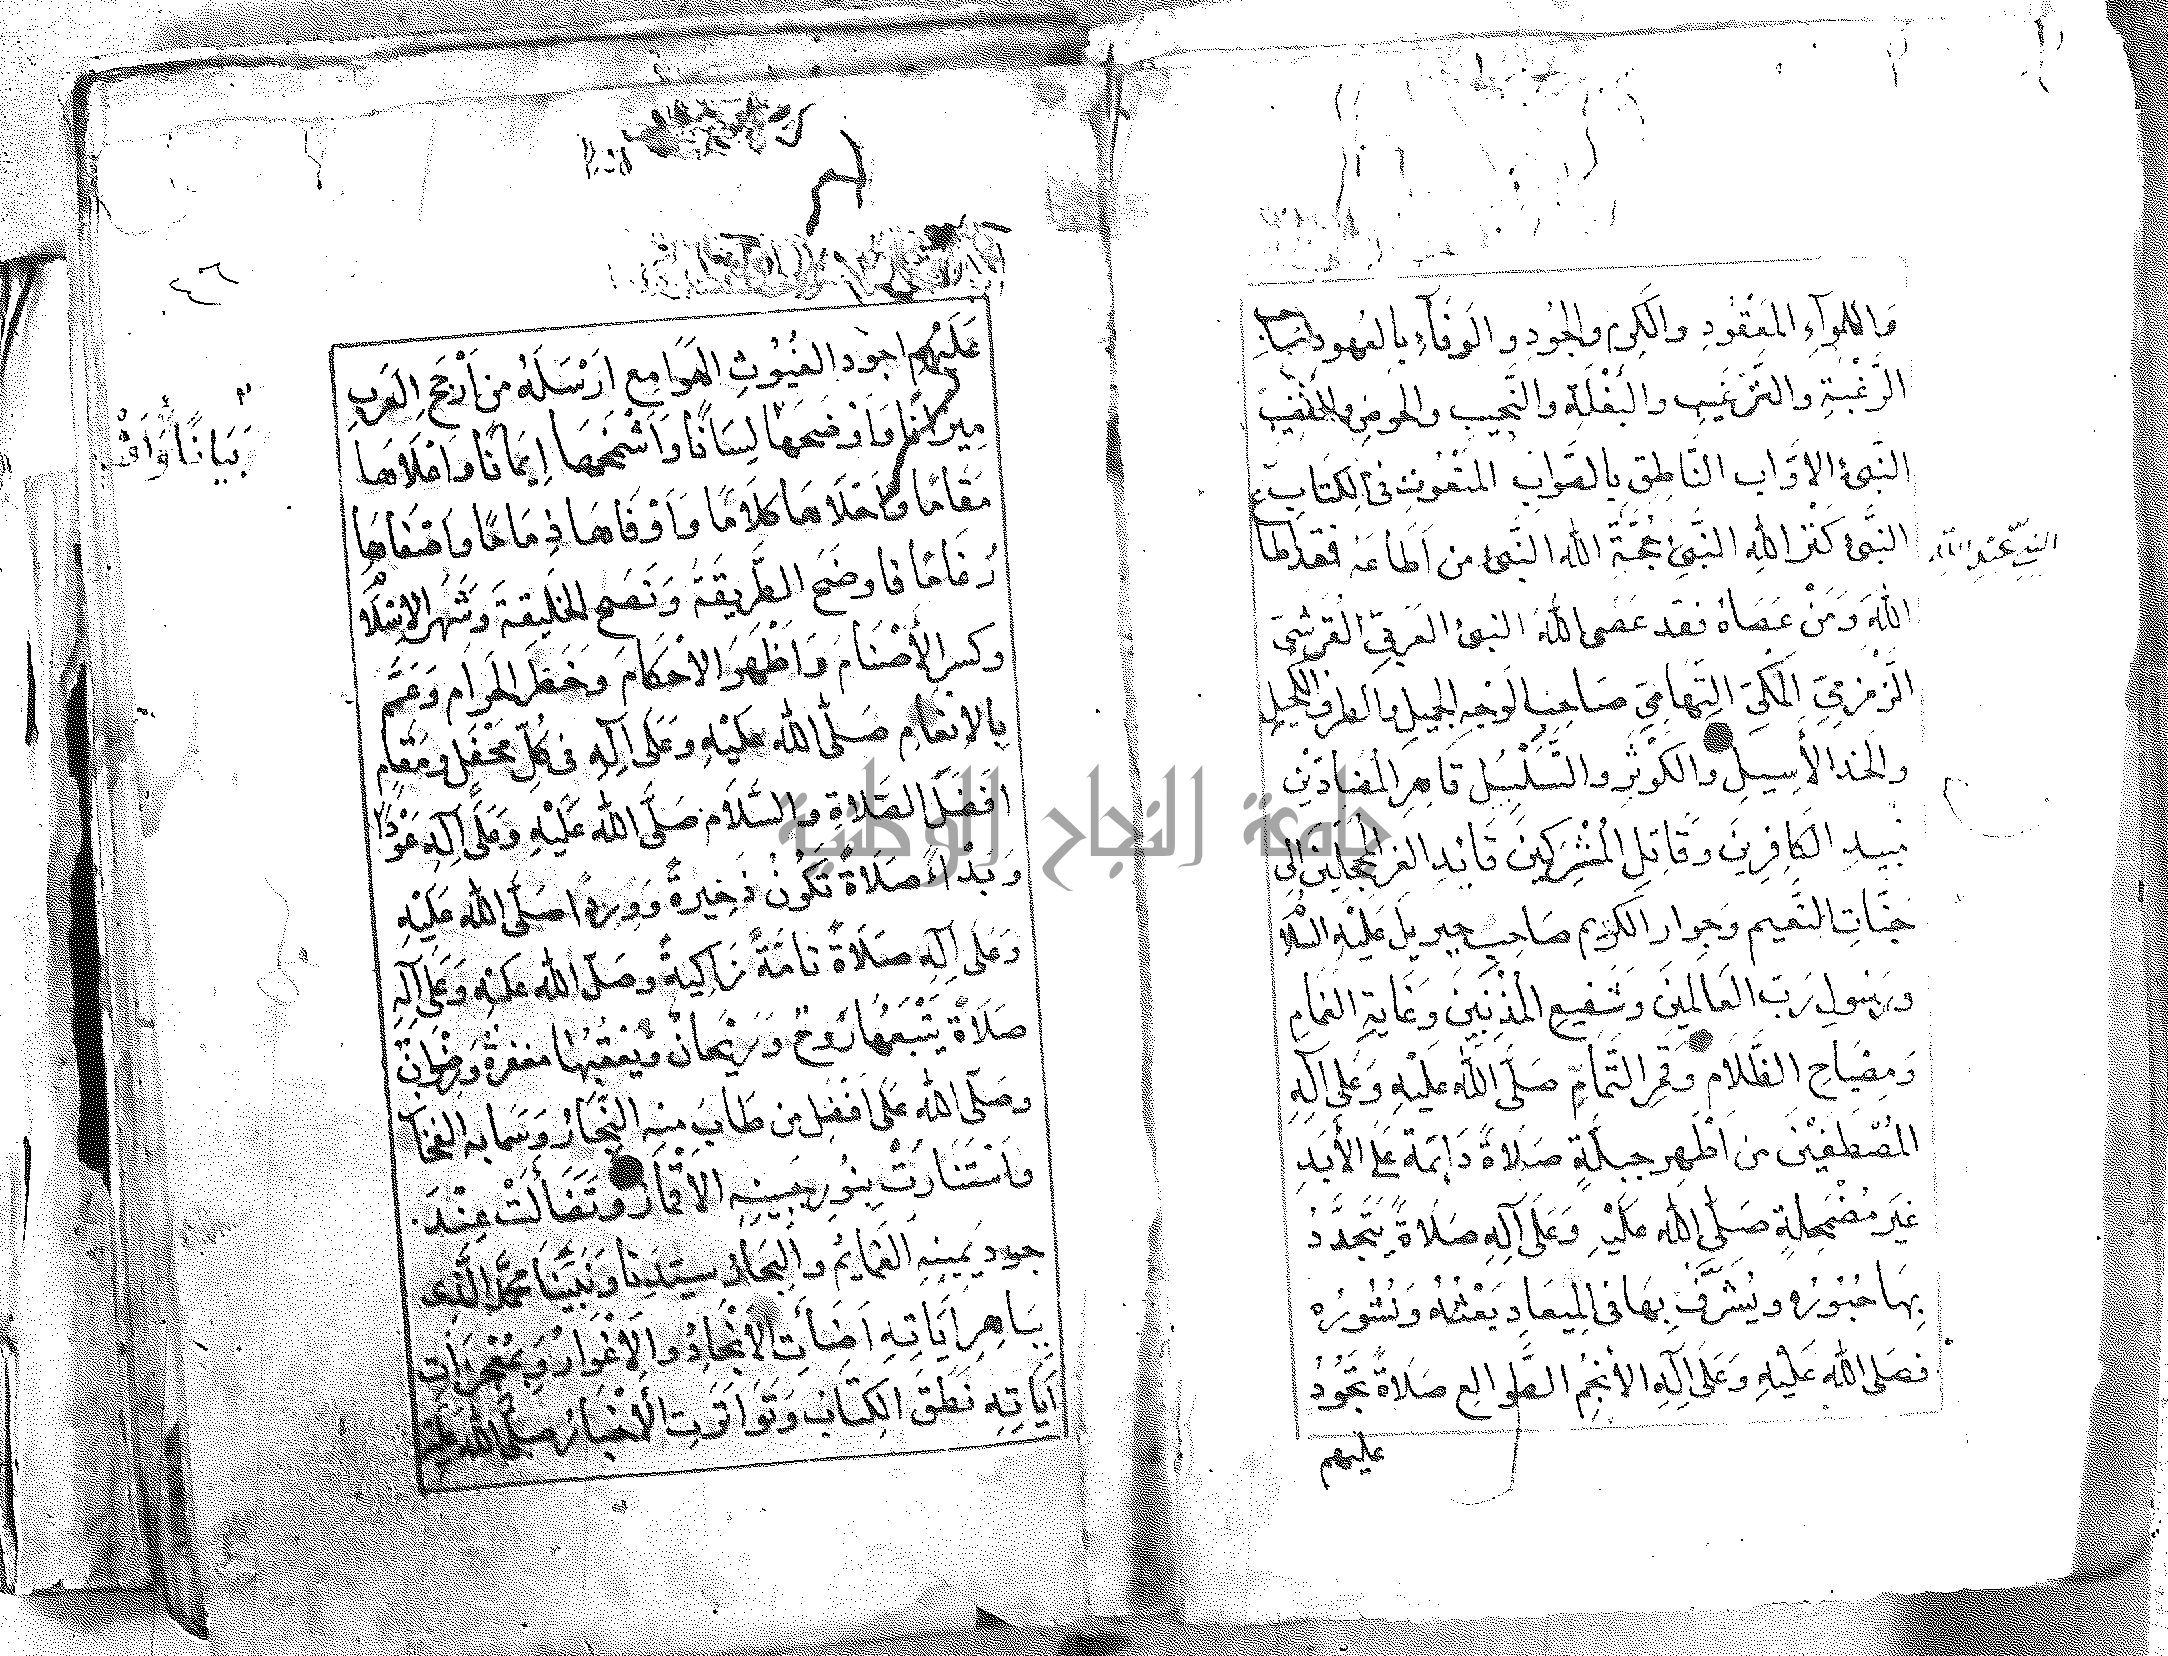 وَاللوآءِ المَعْقُودِ والكَرمِ والجُودِ والوَفَآءِ بالعُهودِ صَاحِبِ
الرَّغْبَةِ والتَّرْغيبِ والبَغْلَةِ والنَّجيبِ والحوضِ والقَضِيبِ
النبيِّ الأوَّاب النَّاطِقِ بالصَّوابِ المنْعُوتِ في الكِتَابِ
النبيِّ كَنْزِ اللهِ النَّبيِّ حُجَّةِ الله النَّبيِّ من أطَاعَهُ فقد أطَاعَ
النبيِّ عَبْدِ اللهِ
اللهَ وَمَنْ عَصَاهُ فقد عَصَى اللهَ النبيِّ العَرَبيِّ القُرَشيِّ
الزَّمْزَميِّ المَكِّيِّ التِّهَاميِّ صَاحِبِ الوَجْهِ الجَميلِ والطرفِ الكَحِيلِ
والخدِّ الأَسيلِ والكَوْثَرِ والسَّلْسَبيلِ قَاهِرِ المُضَادِّيْنِ
مُبيدِ الكَافِرينَ وَقَاتِلِ المُشْرِكينَ قَائِدِ الغرِّ المُحَجَّلينَ إلى
جَنَّاتِ النَّعيم وَجِوارِ الكَريم صَاحِبِ جبريلَ عَليْهِ السَّلَامُ
وَرَسُولِ رَبِّ العَالَمينَ وَشَفيعِ المُذْنِبينَ وَغَايَةِ الغَمَامِ
وَمِصْبَاحِ الظَّلَامِ وَقَمَرِ التَّمَامِ صَلَّى اللهُ عَلَيْهِ وَعَلَى آلِهِ
المُصْطَفَيْنَ مِن أَطْهَرِ جِبِلَّةٍ صَلَاةً دَائِمَةً عَلَى الأَبَدِ
غَيْرَ مُضْمَحِلَّةٍ صَلَّى الله عَلَيْهِ وَعَلَى آلِهِ صَلَاةً يَتَجَدَّدُ
بِهَا حُبُورُهُ ويُشَرَّفُ بِهَا في المِيعَادِ بَعْثُهُ وَنُشُورُهُ
فصَلى الله عَلَيْهِ وَعَلَى آلِهِ الأَنْجُمِ الطَّوالِعِ صَلَاةً تَجُودُ
عليهم
٤٦
عَلَيْهِم اجْوَد الغُيُوثِ الهَوَامع أرْسَلَهُ من أرْجَحِ العَرَبِ
ميزانًا وَأوْضَحِهَا لِسَانًا وَأشْمَخِهَا إيمَانًا وَأعْلَاهَا
بَيَانًا وَأفْصَحِهَا
مَقَامًا وَأحْلَاهَا كَلَامًا وَأوْفَاهَا ذِمَامًا وَأصْفَاهَا
رُغَامًا فأوضَحَ الطَّريقَةَ وَنَصَحَ الخَليقَةَ وَشَهَرَ الإِسْلَامَ
وكسر الأَصْنَامَ وَأظْهَرَ الأَحْكَامَ وَحَظَرَ الحَرَامَ وَعَمَّ
بالإنعَامِ صَلَّى اللهُ عَلَيْهِ وَعَلَى آلِهِ في كُلِّ مَحْفَلٍ وَمَقَامٍ
أفْضَلَ الصَّلَاةِ والسَّلَامِ صَلَّى اللهُ عَلَيْهِ وَعَلَى آلِهِ عَوْدًا
وَبَدْءًا صَلَاةً تَكُونُ ذَخيرَةً وَوِرْدًا صَلَّى اللهُ عَلَيْهِ
وَعَلَى آلِهِ صَلَاةً تَامَّةً زَاكِيَةً وصَلَّى اللهُ عَلَيْهِ وَعَلَى آلِهِ
صَلَاةً يَتْبَعُهَا رَوْحٌ وَرَيْحَانٌ وَيَعْقُبُهَا مَغْفِرَةٌ وَرِضْوَانٌ
وصَلَّى الله عَلَى أفْضَلِ من طَابَ مِنْهُ النِّجَارُ وَسَمَا بهِ الفَخَارُ
وَاسْتَنَارَتْ بِنُورِ جَبينِهِ الأَقْمَارُ وَتَضَاءَلَتْ عِنْدَ
جودِ يَمينِهِ الغَمَايِمُ والبِحَارُ سيِّدِنَا وَنَبيِّنَا محمَّدٍ الَّذي
بِبَاهِرِ آيَاتِهِ أضَاءَتِ الأَنْجَادُ والأَغْوَارُ وَبِمُعْجِزَاتِ
آيَاتِهِ نَطَقَ الكِتَابُ وَتَوَاتَرَتِ الأَخْبَارُ صَلَّى اللهُ عَلَيْهِ
جامعة النجاح الوطنية